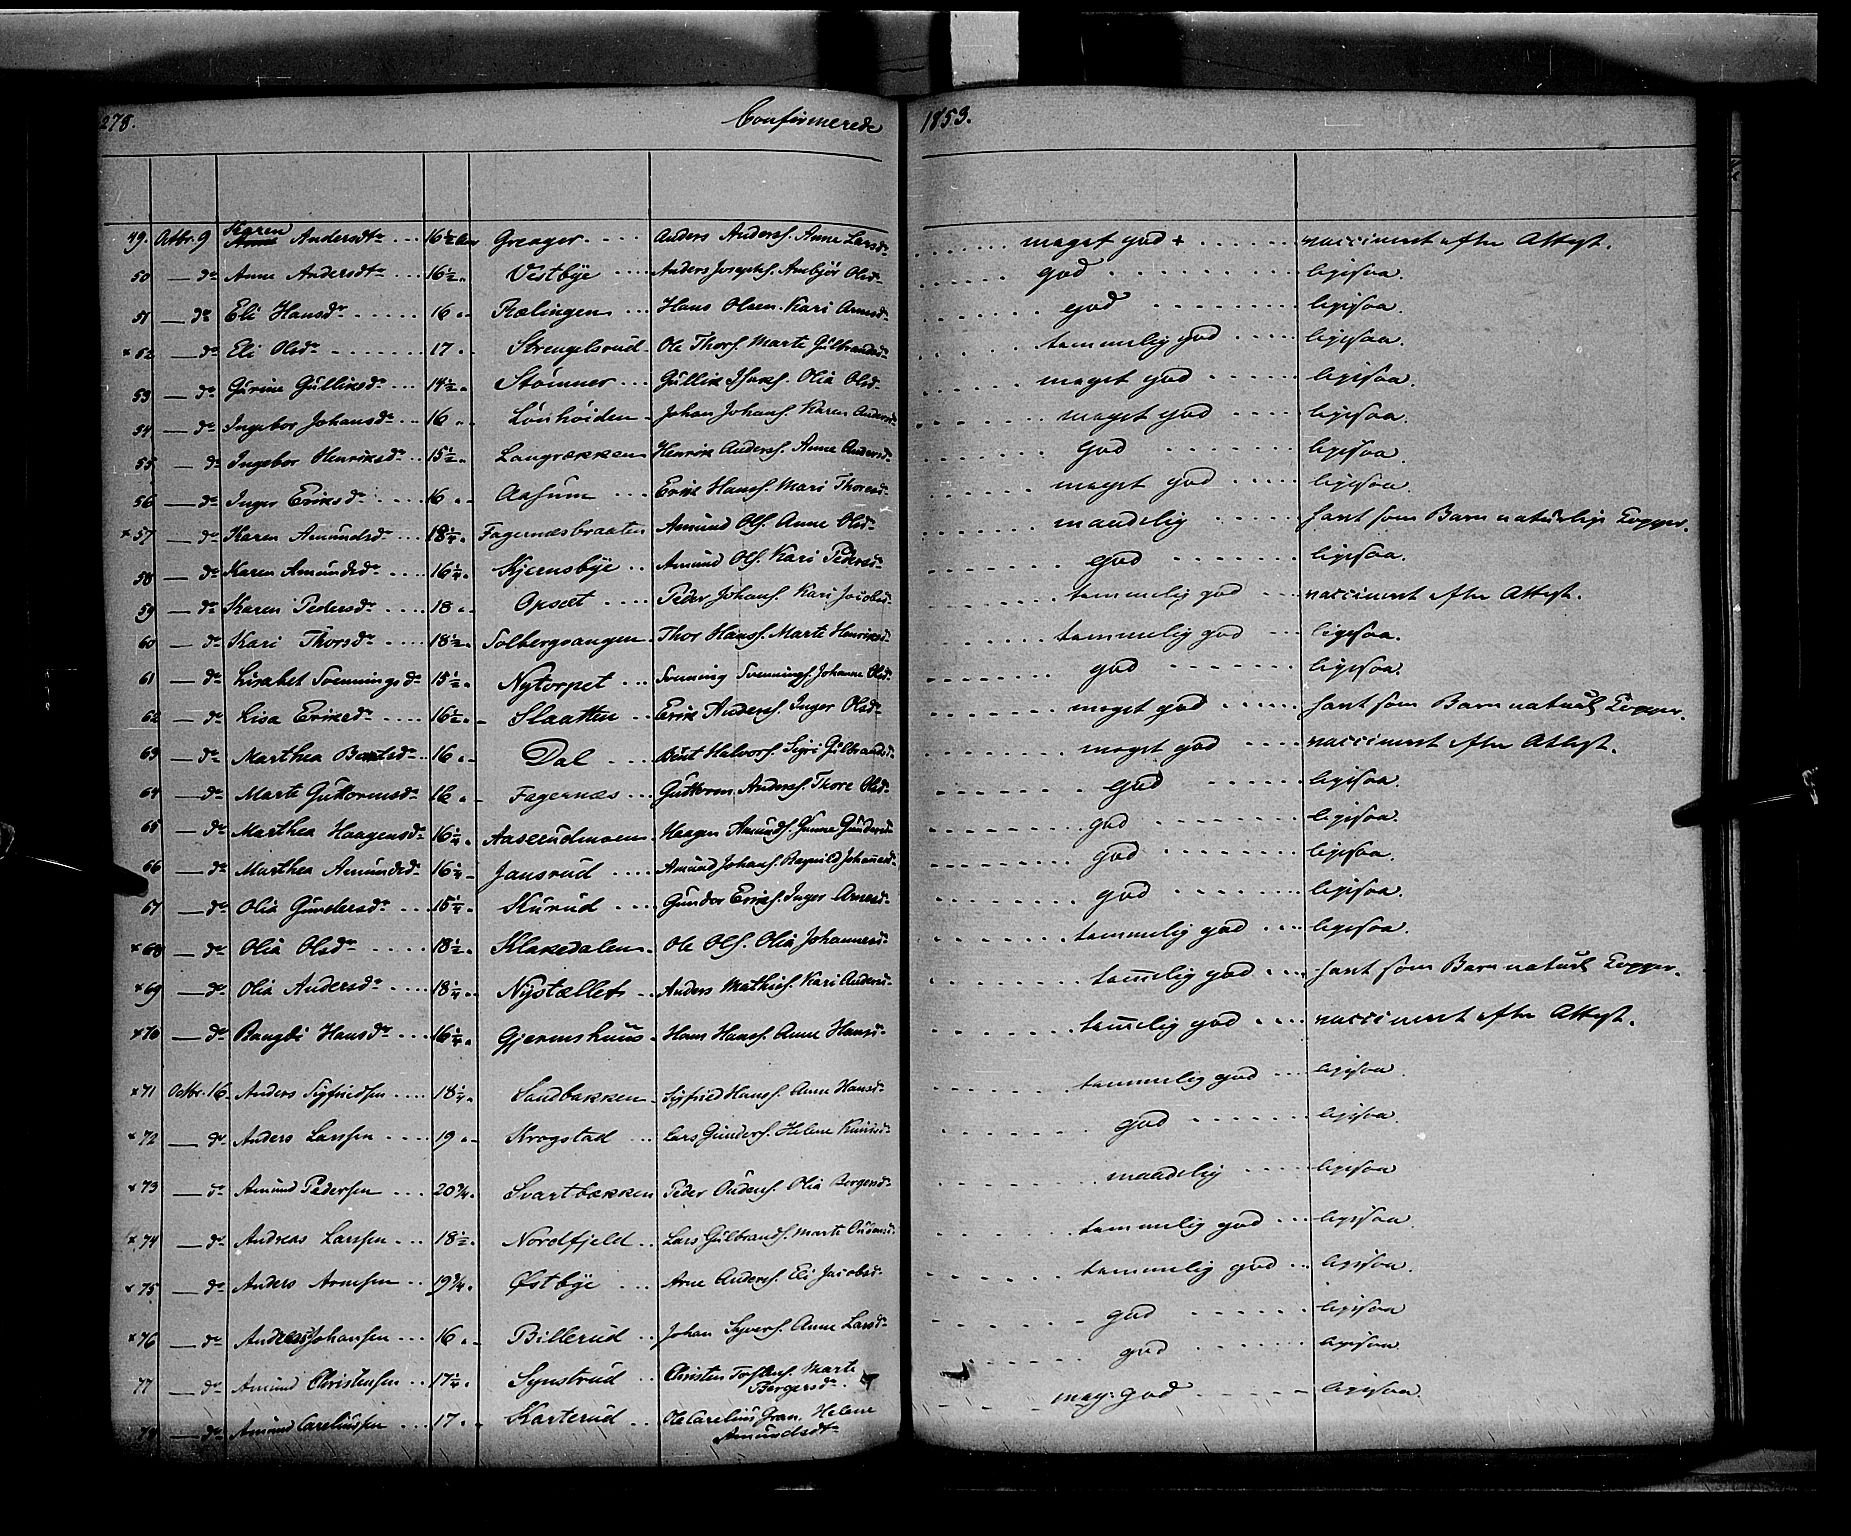 278. Confirmerede 1853.
49. Octbr. 9 Karen Andersdtr 16½ Aar Greager Anders Anders. Anne Larsd. meget god + vaccineret efter Attest.
50 — do Anne Andersdtr 16½ Vestbye Anders Josephs. Anbjør Olsd. god ligesaa.
51 — do Eli Hansdr 16 Rælingen Hans Olsen. Kari Arnesd. god ligesaa.
x 52 — do Eli Olsdr 17 Strengelsrud Ole Thors. Marte Gulbrandsd. temmelig god ligesaa.
53 — do Gurine Gulliksdr 14½ Stømner Gullik Isaks. Olia Olsd. meget god ligesaa.
54 — do Ingebor Johansdr 16 Lønhøiden Johan Johans. Karen Andersd. meget god ligesaa.
55 — do Ingebor Henriksdr 15½ Langrækken Henrik Anders. Anne Andersd. god ligesaa.
56 — do Inger Eriksdr 16 Aasum Erik Hans. Mari Thoresd. meget god ligesaa.
x 57 — do Karen Amundsdr 18¼ Fagernæsbraaten Amund Ols. Anne Olsd. maadelig havt som Barn naturlige Kopper.
58 — do Karen Amundsdr 16¼ Kjernsbye Amund Ols. Kari Pedersd. god ligesaa.
59 — do Karen Pedersdr 18 Opsæt Peder Johans. Kari Jacobsd. temmelig god vaccineret efter Attest.
60 — do Kari Thorsdr 18½ Solbergsangen Thor Hans. Marte Henriksd. temmelig god ligesaa.
61 — do Lisabet Svenningsdr 15½ Nytorpet Svenning Svennings. Johanne Olsd. god ligesaa.
62 — do Lisa Eriksdr 16½ Slaatten Erik Anders. Inger Olsd. meget god havt som Barn naturl. Kopper.
63 — do Marthea Berntsdr 16 Dal Bernt Halvors. Sigri Gulbrandsd. meget god vaccineret efter Attest.
64 — do Marte Guttormsdr 16 Fagernæs Guttorm Anders. Thore Olsd. god ligesaa.
65 — do Marthea Haagensdr 16¼ Aaserudmoen Haagen Amunds. Gunne Gundersd. god ligesaa.
66 — do Marthea Amundsdr 16¼ Jansrud Amund Johans. Ragnild Johannesd. god ligesaa.
67 — do Olia Gundersdr 15¼ Skurud Gunder Eriks. Inger Arnesd. god ligesaa.
x 68 — do Olia Olsdr 18½ Klakedalen Ole Ols. Olia Johannesd. temmelig god ligesaa.
x 69 — do Olia Andersdr 18¼ Nystællet Anders Mathies. Kari Andersd. tem̅elig god havt som Barn naturl. Kopper.
x 70 — do Rangdi Hansdr 16¼ Gjermshuus Hans Hans. Anne Hansd. tem̅elig god vaccineret efter Attest.
x 71 Octbr. 16 Anders Sigfridsen 18¼ Sandbakken Sigfrid Hans. Anne Hansd. temmelig god ligesaa
x 72 — do Anders Larssen 19 Krogstad Lars Gunders. Helene Knudsd. god ligesaa
x 73 — do Amund Pedersen 20¾ Svartbækken Peder Audens. Olia Bergersd. maadelig ligesaa
x 74 — do Andreas Larssen 18½ Nordfjeld Lars Gulbrands. Marte Audensd. temmelig god ligesaa.
x 75 — do Anders Arnesen 19¾ Østbye Arne Anders. Eli Jacobsd. temmelig god ligesaa.
x 76 — do Andreas Johansen 16 Billerud Johan Syvers. Anne Larsd. god ligesaa
77 — do Amund Christensen 17¼ Synstrud Christen Torstens. Marte god ligesaa
Bergersdr.
78 — do Amund Careliussen 17 Karterud Ole Carelius Gran. Helene meg. god ligesaa.
Amundsdtr